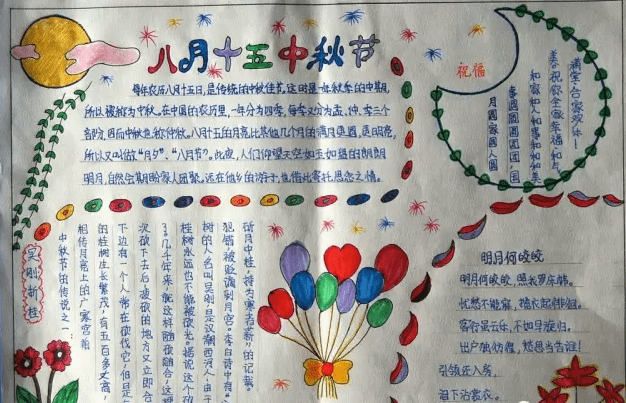 八月十五中秋节
每年农历八月十五日,是传统的中秋佳节。这时是一年秋季的中期,
所以被称为中秋。在中国的农历里,一年分为四季,每季又分为孟、仲、季三个
部分,因而中秋也称仲秋。八月十五的月亮比其他几个月的满月更圆,更明亮,
所以又叫做“月夕”、“八月节”。此夜,人们仰望天空如玉如盘的朗朗
明月,自然会期盼家人团聚。远在他乡的游子,也借此寄托思念之情。
祝福
满堂合家欢乐!
美。祝你全家幸福和
和家和人和事和和和美
月圆家圆人圆
吴刚折桂
中秋节的传说之一:
相传月亮上的广寒宫前
的桂树生长繁茂,有五百多丈高,
下边有一个人常在砍伐它,但是
次砍下去后,被砍的地方又立即合
几千年来,就这样随砍随合,这
桂树永远也不能被砍光。据说这个砍
树的人名叫吴刚,是汉朝西河人,
犯错被贬谪到月宫,李白诗中有“
斫月中桂,持为寒者薪”的记载。
明月何皎皎
明月何皎皎,照我罗床帏。
忧愁不能寐,揽衣起徘徊。
客行虽云乐,不如早旋归。
出户独彷徨,愁思当告谁!
引领还入房,
泪下沾裳衣。